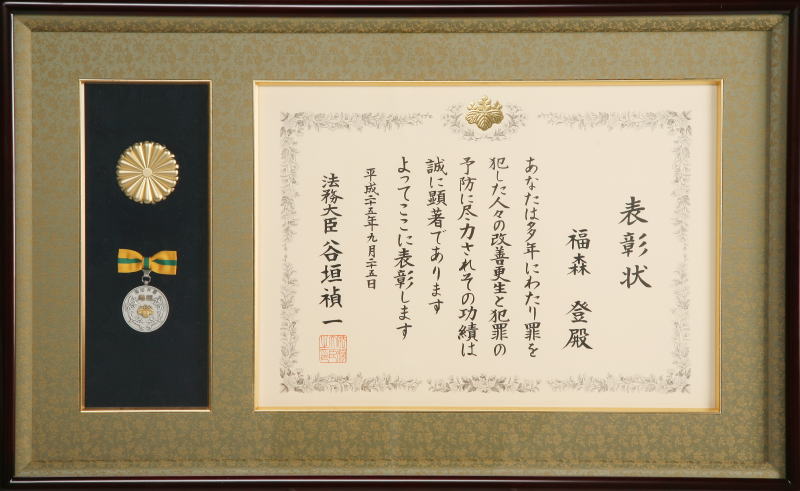 表彰状
福森 登殿
あなたは多年にわたり罪を
犯した人々の改善更生と犯罪の
予防に尽力されその功績は
誠に顕著であります
よってここに表彰します
平成二十五年九月二十五日
法務大臣 谷垣禎一